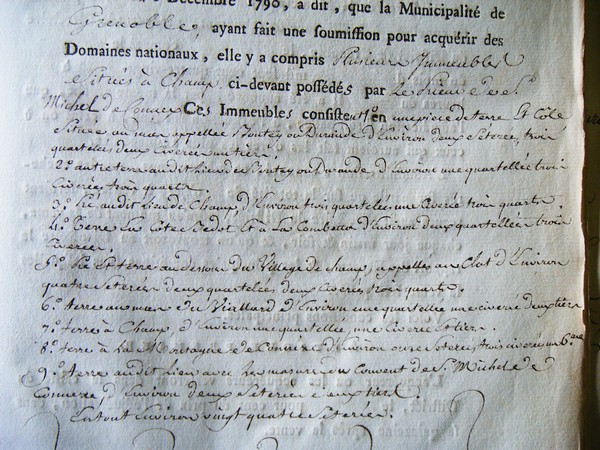 Décembre 1790, a dit, que la Municipalité de
Grenoble, ayant fait une soumission pour acquérir des
Domaines nationaux, elle y a compris plusieurs Immeubles
situés à Champ, ci-devant possédés par Le Prieuré de St.
Michel de Connex Ces Immeubles consistent 1.º en une piece de terre Et Côte
Située au mas appellée Ponteyou Duraude d'Environ deux Seterées, trois
quartelées deux Civerées un tier.
2.º autre terre audit lieu de Ponteyou Duraude, d'Environ une quartellée trois
Civerées, trois quarts.
3.º Pré audit lieu de Champ, d'Environ trois quartelées une Civerée trois quarts.
4.º Terre La Côte Et à La Combe d'Environ deux quartellées trois
Civerées.
5.º Pré Et terre au dessous du Village de Champ, appellés au Clot d'Environ
quatre Seterées deux quartelées deux Civerées trois quarts.
6.º terre au mas du Viallard d'Environ une quartellée une civerée deux tiers
7.º terre à Champ, d'Environ une quartellée, une Civerée Et tiers.
8.º terre à La Montagne de Connexe d'Environ onze Seterées, trois civerées, un 6.eme
9.º terre audit lieu avec les masures du Couvent de St. Michel de
Connexe, d'Environ deux Seterées deux tiers.
En tout Environ vingt quatre Seterées.